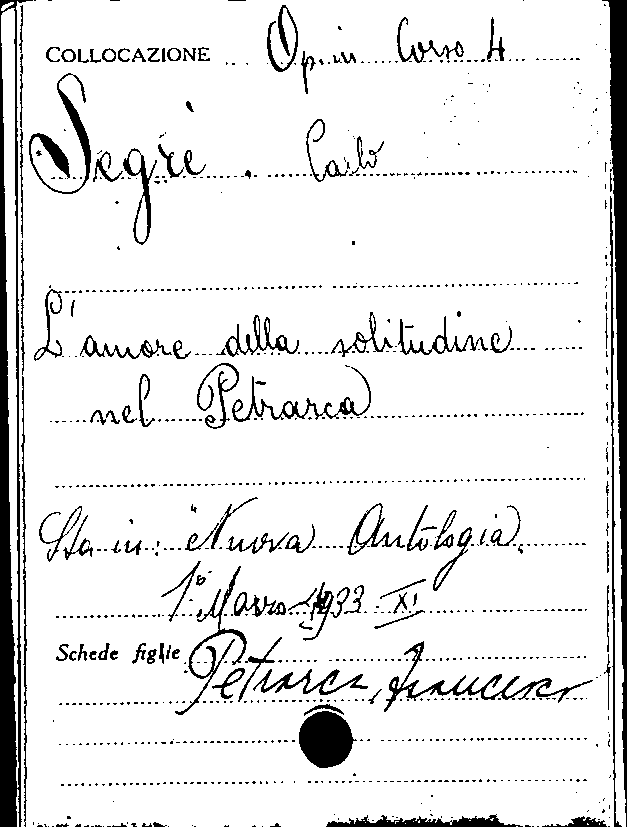 COLLOCAZIONE Op. in Corso 4
Segrè. Carlo
L'amore della solitudine
nel Petrarca
Sta in: "Nuova Antologia.
1° Marzo 1933. XI
Schede figlie Petrarca, Francesco